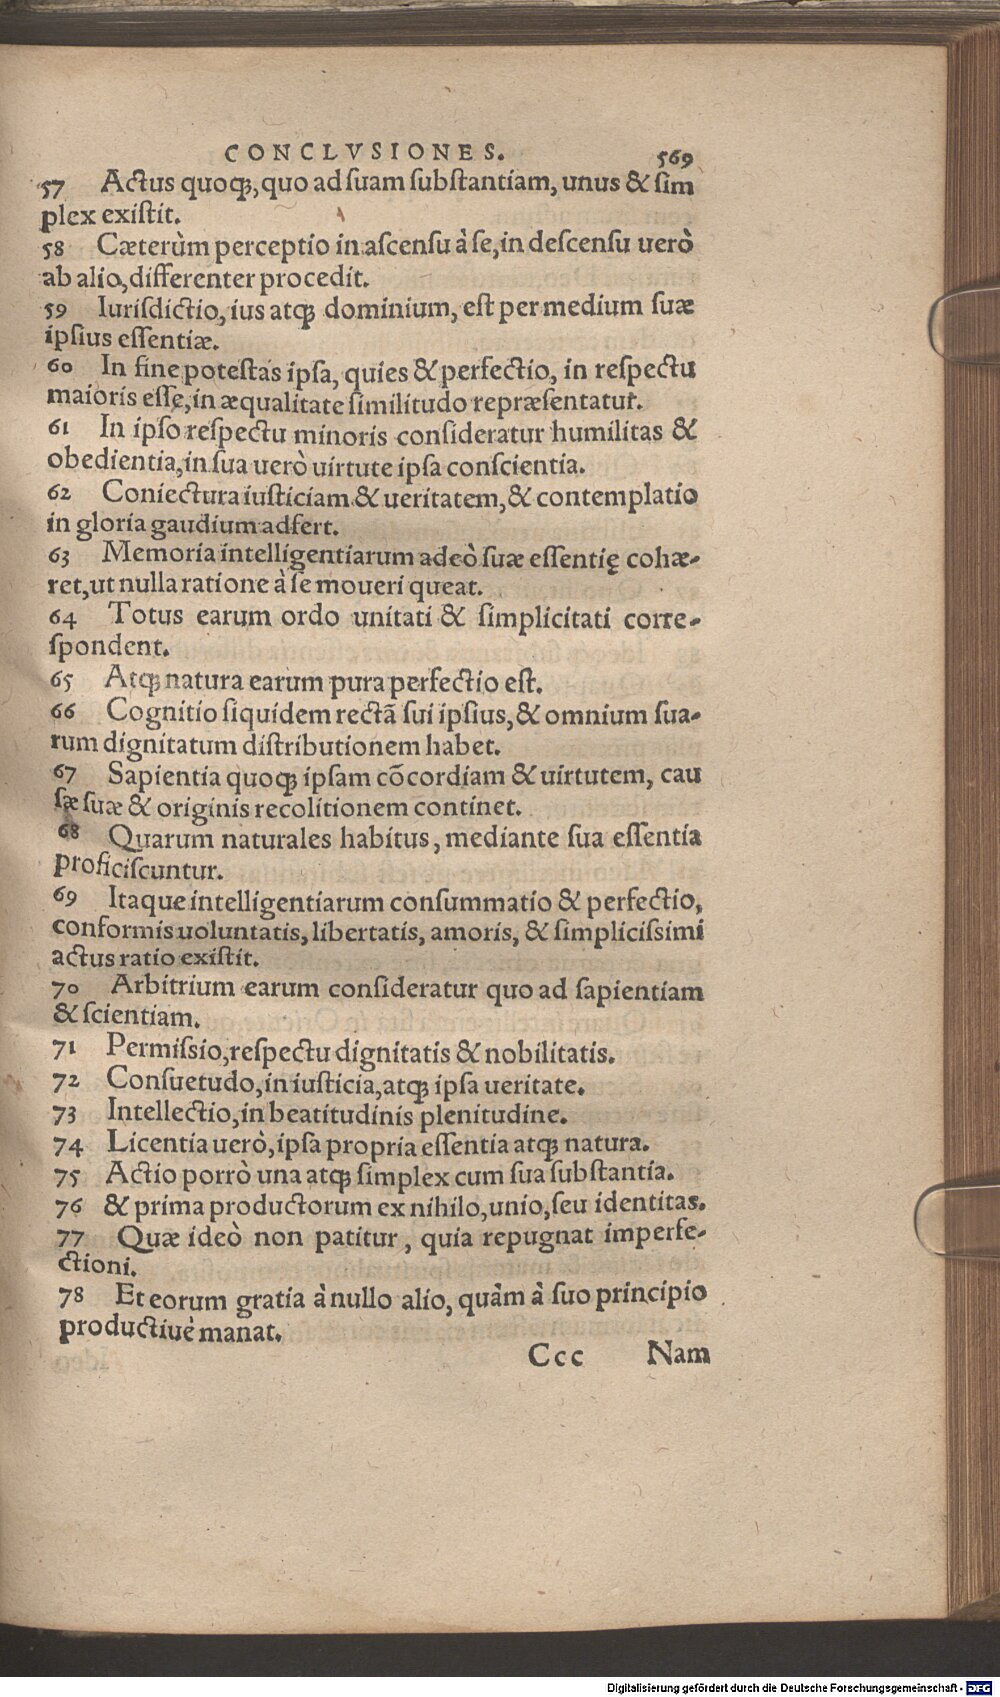 CONCLVSIONES. 569
57 Actus quoqꝫ, quo ad suam substantiam, unus & sim
plex existit.
58 Cæterùm perceptio in ascensu à se, in descensu uerò
ab alio, differenter procedit.
59 Iurisdictio, ius atqꝫ dominium, est per medium suæ
ipsius essentiæ.
60 In fine potestas ipsa, quies & perfectio, in respectu
maioris esse, in æqualitate similitudo repræsentatur.
61 In ipso respectu minoris consideratur humilitas &
obedientia, in sua uerò uirtute ipsa conscientia.
62 Coniectura iusticiam & ueritatem, & contemplatio
in gloria gaudium adfert.
63 Memoria intelligentiarum adeò suæ essentię cohæ-
ret, ut nulla ratione à se moueri queat.
64 Totus earum ordo unitati & simplicitati corre-
spondent.
65 Atqꝫ natura earum pura perfectio est.
66 Cognitio siquidem rectã sui ipsius, & omnium sua-
rum dignitatum distributionem habet.
67 Sapientia quoqꝫ ipsam cõcordiam & uirtutem, cau
sæ suæ & originis recolitionem continet.
68 Quarum naturales habitus, mediante sua essentia
proficiscuntur.
69 Itaque intelligentiarum consummatio & perfectio,
conformis uoluntatis, libertatis, amoris, & simplicissimi
actus ratio existit.
70 Arbitrium earum consideratur quo ad sapientiam
& scientiam.
71 Permissio, respectu dignitatis & nobilitatis.
72 Consuetudo, in iusticia, atqꝫ ipsa ueritate.
73 Intellectio, in beatitudinis plenitudine.
74 Licentia uerò, ipsa propria essentia atqꝫ natura.
75 Actio porrò una atqꝫ simplex cum sua substantia.
76 & prima productorum ex nihilo, unio, seu identitas.
77 Quæ ideò non patitur, quia repugnat imperfe-
ctioni.
78 Et eorum gratia à nullo alio, quàm à suo principio
productiuè manat.
Ccc Nam
Digitalisierung gefördert durch die Deutsche Forschungsgemeinschaft - DFG